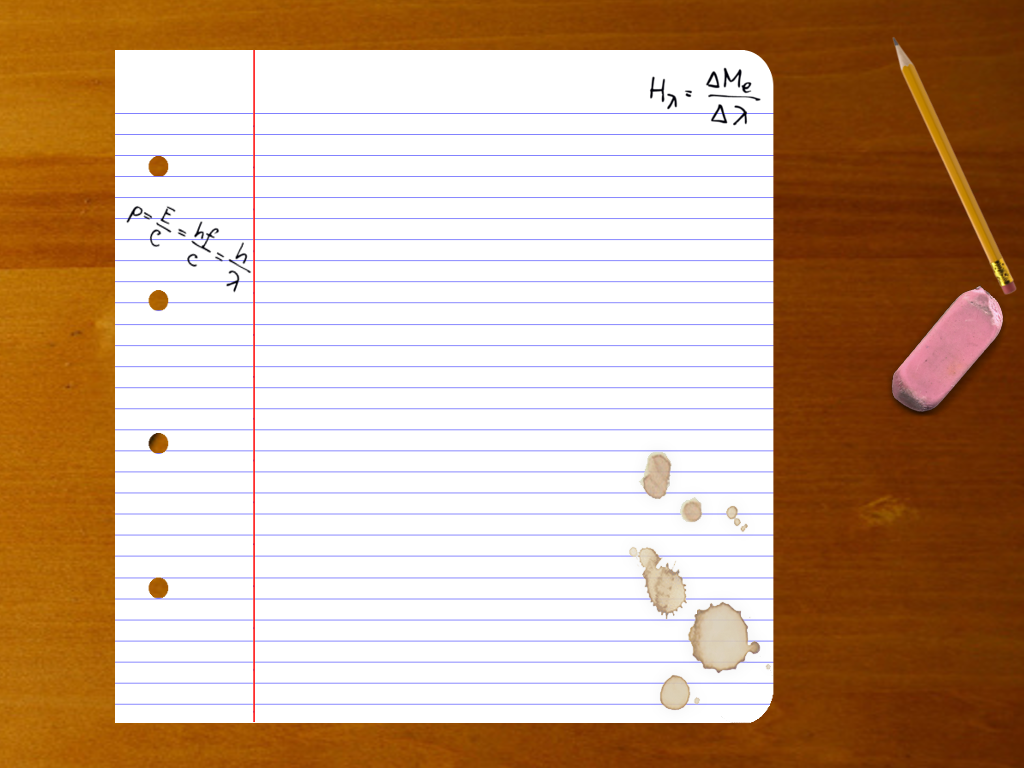 H_λ = ΔM_e / Δλ
p = E/c = hf/c = h/λ